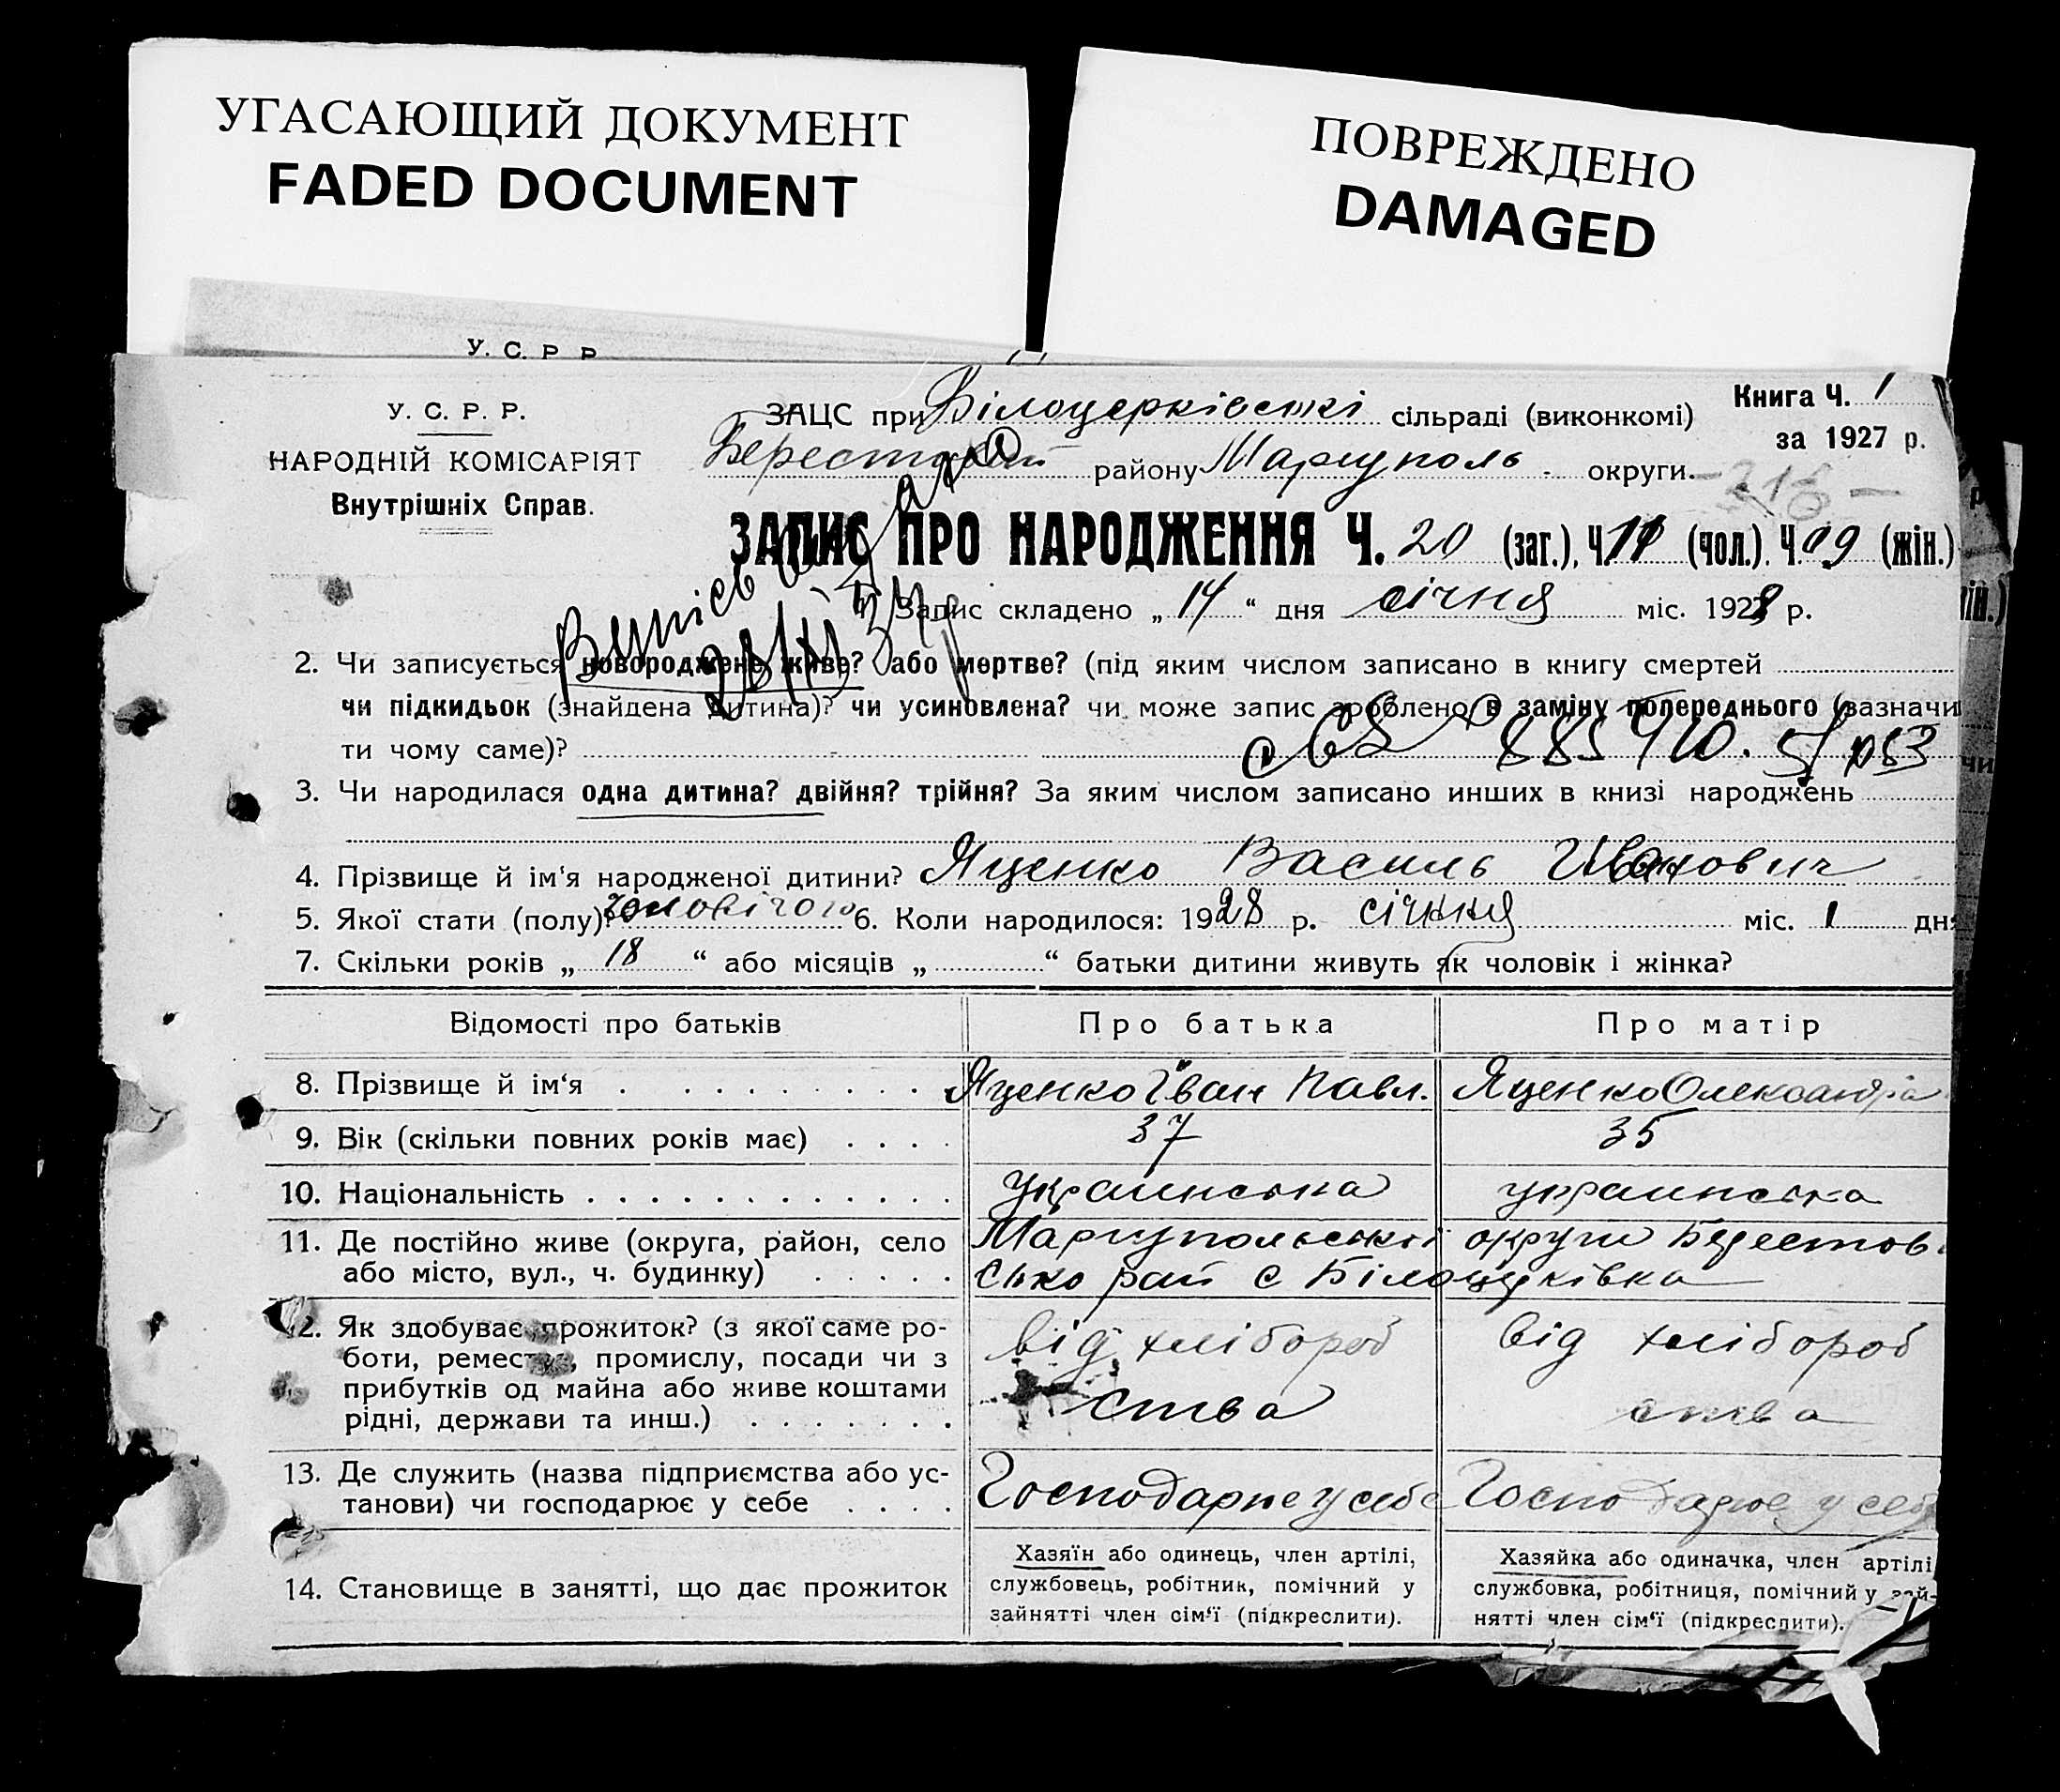 УГАСАЮЩИЙ ДОКУМЕНТ
FADED DOCUMENT
ПОВРЕЖДЕНО
DAMAGED
У. С. Р. Р.
У. С. Р. Р.
НАРОДНІЙ КОМІСАРІЯТ
Внутрішніх Справ.
ЗАЦС при Білоцерківській сільраді (виконкомі)
Берестов района району Маріуполь округи.
Книга Ч. 1
за 1927 р.
- 216 -
ЗАПИС ПРО НАРОДЖЕННЯ Ч. 20 (заг.), Ч. 11 (чол.). Ч. 9 (жін.)
1. Запис складено „ 14 “ дня січня міс. 1928 р.
2. Чи записується новороджене живе? або мертве? (під яким числом записано в книгу смертей
чи підкидьок (знайдена дитина)? чи усиновлена? чи може запис зроблено в заміну попереднього (зазначи
ти чому саме)?
885910.
3. Чи народилася одна дитина? двійня? трійня? За яким числом записано инших в книзі народжень
4. Прізвище й ім'я народженої дитини? Яценко Василь Иванович
5. Якої стати (полу)? чоловічого 6. Коли народилося: 1928 р. січння міс. 1 дня
7. Скільки років „ 18 “ або місяців „ “ батьки дитини живуть як чоловік і жінка?
Відомості про батьків Про батька Про матір
8. Прізвище й ім‘я Яценко Іван Павл. Яценко Олександріа
9. Вік (скільки повних років має) 37 35
10. Національність украинська украинська
11. Де постійно живе (округа, район, село Маріупольської округи Берестов
або місто, вул., ч. будинку) сько рай с Білоцерківка
12. Як здобуває прожиток? (з якої саме ро-
боти, ремества, промислу, посади чи з
прибутків од майна або живе коштами
рідні, держави та инш.)
від хлібороб
ства
від хлібороб
ства
13. Де служить (назва підприємства або ус-
танови) чи господарює у себе
Господарює у себе
Господарює у себе
14. Становище в занятті, що дає прожиток
Хазяїн або одинець, член артілі,
службовець, робітник, помічний у
зайнятті член сім‘ї (підкреслити).
Хазяйка або одиначка, член артілі
службовка, робітниця, помічний у зай-
нятті член сім‘ї (підкреслити).